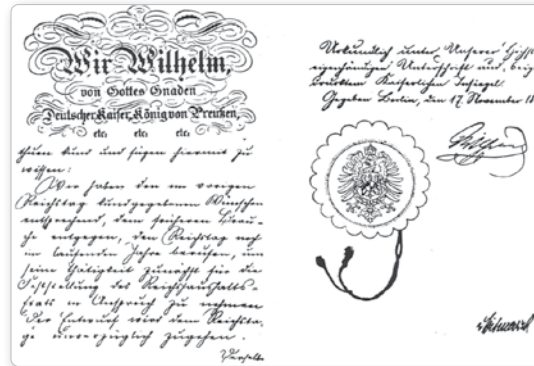 Wir Wilhelm,
von Gottes Gnaden
Deutscher Kaiser, König von Preußen,
etc. etc. etc.
thuen kund und fügen hiermit zu
wissen:
Wir haben den im vorigen
Reichstag kundgegebenen Wünschen
entsprechend, dem früheren Brau-
che entgegen, den Reichstag noch
im laufenden Jahre berufen, um
seine Thätigkeit zunächst für die
Feststellung des Reichshaushalts-
Etats in Anspruch zu nehmen.
Der Entwurf wird dem Reichsta-
ge unverzüglich zugehen.
Derselbe
Urkundlich unter Unserer Höchst
eigenhändigen Unterschrift und beige
drucktem Kaiserlichen Insiegel.
Gegeben Berlin, den 17. November 18
Wilhelm
v. Bismarck